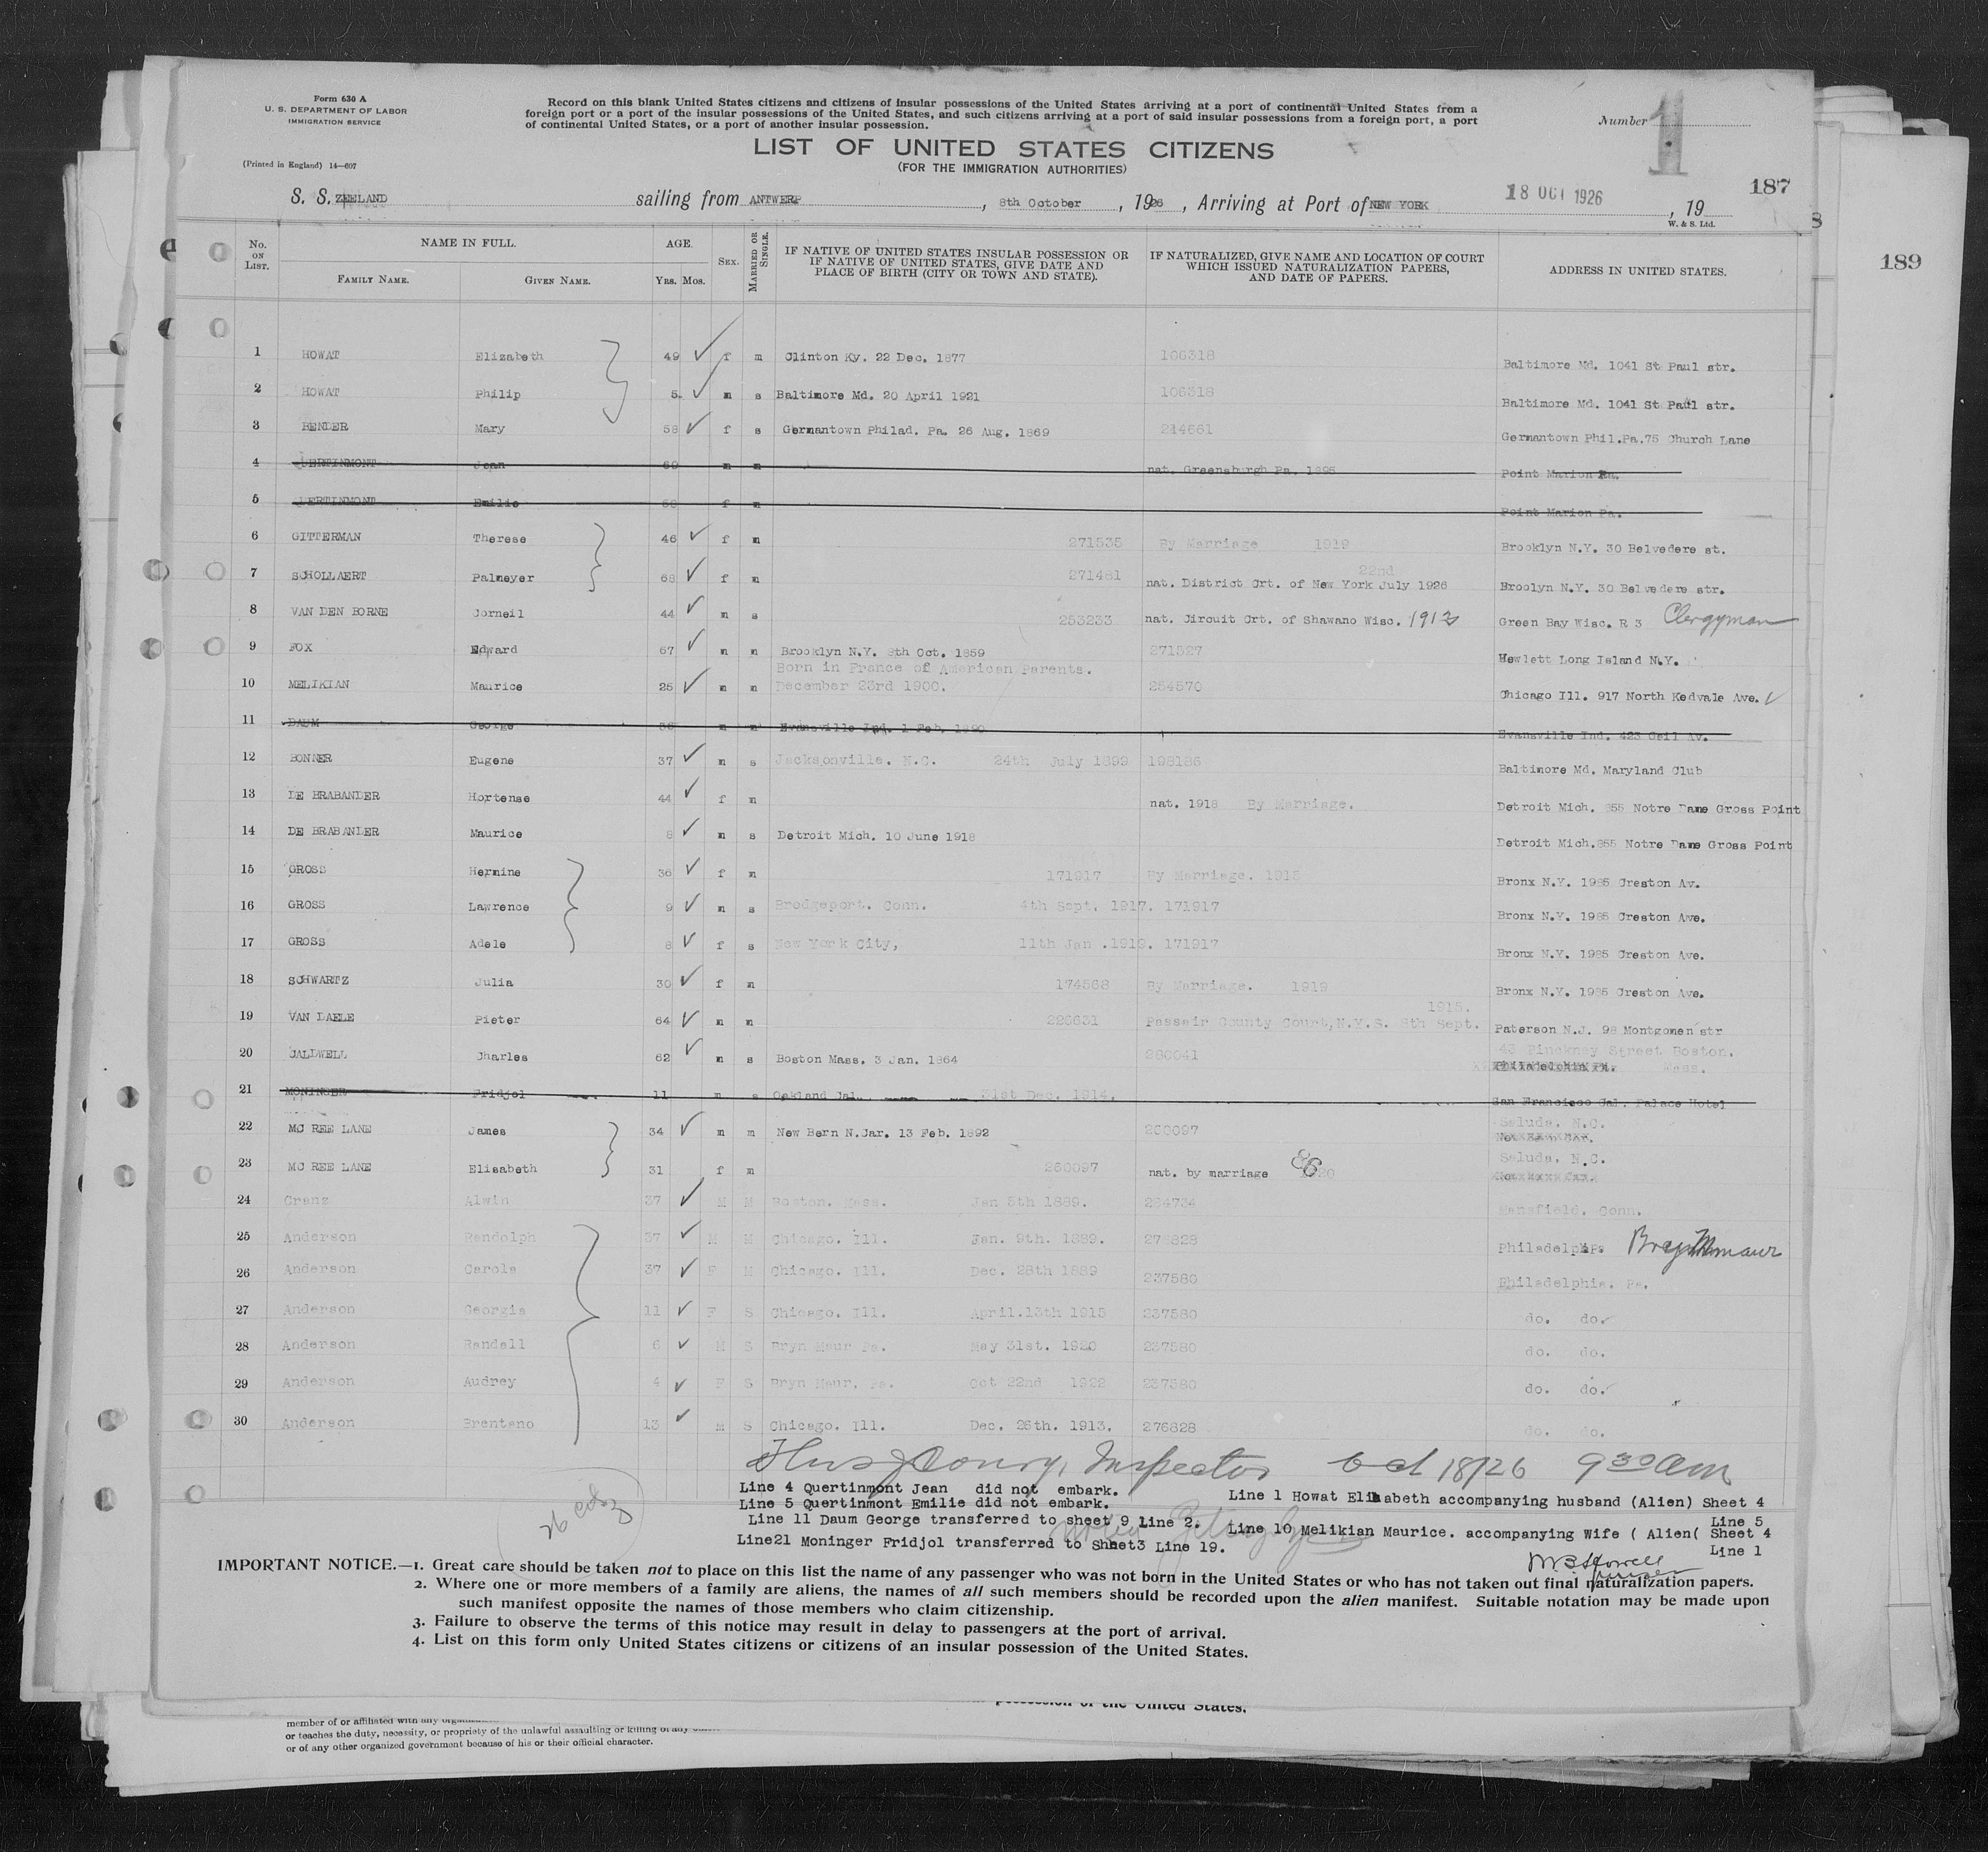 Form 630 A
U. S. DEPARTMENT OF LABOR
IMMIGRATION SERVICE
(Printed in England) 14—607
Record on this blank United States citizens and citizens of insular possessions of the United States arriving at a port of continental United States from a
foreign port or a port of the insular possessions of the United States, and such citizens arriving at a port of said insular possessions from a foreign port, a port
of continental United States, or a port of another insular possession.
Number 1
LIST OF UNITED STATES CITIZENS
(FOR THE IMMIGRATION AUTHORITIES)
187
S. S. ZEELAND sailing from ANTWERP, 8th October, 1926, Arriving at Port of NEW YORK 18 OCT 1926, 19
W. & S. Ltd.
189
No. ON LIST. NAME IN FULL. FAMILY NAME. GIVEN NAME. AGE. YRS. MOS. SEX. MARRIED OR SINGLE. IF NATIVE OF UNITED STATES INSULAR POSSESSION OR IF NATIVE OF UNITED STATES, GIVE DATE AND PLACE OF BIRTH (CITY OR TOWN AND STATE). IF NATURALIZED, GIVE NAME AND LOCATION OF COURT WHICH ISSUED NATURALIZATION PAPERS, AND DATE OF PAPERS. ADDRESS IN UNITED STATES.
1 HOWAT Elizabeth 49 f m Clinton Ky. 22 Dec. 1877 106318 Baltimore Md. 1041 St Paul str.
2 HOWAT Philip 5 m s Baltimore Md. 20 April 1921 106318 Baltimore Md. 1041 St Paul str.
3 BENDER Mary 58 f s Germantown Philad. Pa. 26 Aug. 1869 214661 Germantown Phil.Pa.75 Church Lane
4 QUERTINMONT Jean 69 m m nat. Greensburgh Pa. 1895 Point Marion Pa.
5 QUERTINMONT Emilie f m Point Marion Pa.
6 GITTERMAN Therese 46 f m 271535 By Marriage 1919 Brooklyn N.Y. 30 Belvedere st.
7 SCHOLLAERT Palmeyer 68 f m 271481 nat. District Crt. of New York July 22nd 1926 Broolyn N.Y. 30 Belvedere str.
8 VAN DEN BORNE Corneil 44 m s 253233 nat. Circuit Crt. of Shawano Wisc. 1912 Green Bay Wisc. R 3 Clergyman
9 FOX Edward 67 m m Brooklyn N.Y. 8th Oct. 1859 271527 Hewlett Long Island N.Y.
10 MELIKIAN Maurice 25 m m Born in France of American Parents. December 23rd 1900. 254570 Chicago Ill. 917 North Kedvale Ave.
11 DAUM George 36 m m Evansville Ind. 1 Feb. 1890 Evansville Ind. 423 Oeil Av.
12 BONNER Eugene 37 m s Jacksonville. N.C. 24th July 1899 198186 Baltimore Md. Maryland Club
13 DE BRABANDER Hortense 44 f m nat. 1918 By Marriage. Detroit Mich. 855 Notre Dame Gross Point
14 DE BRABANDER Maurice 8 m s Detroit Mich. 10 June 1918 Detroit Mich.855 Notre Dame Gross Point
15 GROSS Hermine 36 f m 171917 By Marriage. 1915 Bronx N.Y. 1985 Creston Av.
16 GROSS Lawrence 9 m s Brodgeport. Conn. 4th Sept. 1917. 171917 Bronx N.Y. 1985 Creston Ave.
17 GROSS Adele 8 f s New York City, 11th Jan .1919. 171917 Bronx N.Y. 1985 Creston Ave.
18 SCHWARTZ Julia 30 f m 174568 By Marriage. 1919 Bronx N.Y. 1985 Creston Ave.
19 VAN DAELE Pieter 64 m m 226631 Passair County Court,N.Y.S. 8th Sept. 1915. Paterson N.J. 98 Montgomen str
20 CALDWELL Charles 62 m s Boston Mass. 3 Jan. 1864 260041 43 Pinckney Street Boston. Mass. Philadelphia Pa.
21 MONINGER Fridjol 11 m s Oakland Cal. 31st Dec. 1914. San Francisco Cal. Palace Hotel
22 MC REE LANE James 34 m m New Bern N.Car. 13 Feb. 1892 260097 Saluda. N.C.
23 MC REE LANE Elisabeth 31 f m 260097 nat. by marriage Saluda. N.C.
24 Cranz Alwin 37 M M Boston. Mass. Jan 5th 1889. 294734 Mansfield. Conn.
25 Anderson Randolph 37 M M Chicago. Ill. Jan. 9th. 1889. 276828 Philadelph Pa.
26 Anderson Carola 37 F M Chicago. Ill. Dec. 28th 1889 237580 Philadelphia. Pa.
27 Anderson Georgia 11 F S Chicago. Ill. April.13th 1915 237580 do. do.
28 Anderson Randall 6 M S Bryn Maur Pa. May 31st. 1920 237580 do. do.
29 Anderson Audrey 4 F S Bryn Maur, Pa. Oct 22nd 1922 237580 do. do.
30 Anderson Brentano 13 M S Chicago. Ill. Dec. 26th. 1913. 276828 do. do.
Inspector Oct 18/26 9 30 am
Line 4 Quertinmont Jean did not embark.
Line 5 Quertinmont Emilie did not embark.
Line 11 Daum George transferred to sheet 9 Line 2.
Line21 Moninger Fridjol transferred to Sheet3 Line 19.
Line 1 Howat Elizabeth accompanying husband (Alien) Sheet 4
Line 5
Line 10 Melikian Maurice. accompanying Wife ( Alien( Sheet 4
Line 1
IMPORTANT NOTICE.—1. Great care should be taken not to place on this list the name of any passenger who was not born in the United States or who has not taken out final naturalization papers.
2. Where one or more members of a family are aliens, the names of all such members should be recorded upon the alien manifest. Suitable notation may be made upon
such manifest opposite the names of those members who claim citizenship.
3. Failure to observe the terms of this notice may result in delay to passengers at the port of arrival.
4. List on this form only United States citizens or citizens of an insular possession of the United States.
possession of the United States.
member of or affiliated with any
or teaches the duty, necessity, or propriety of the unlawful assaulting or killing of any
or of any other organized government because of his or their official character.